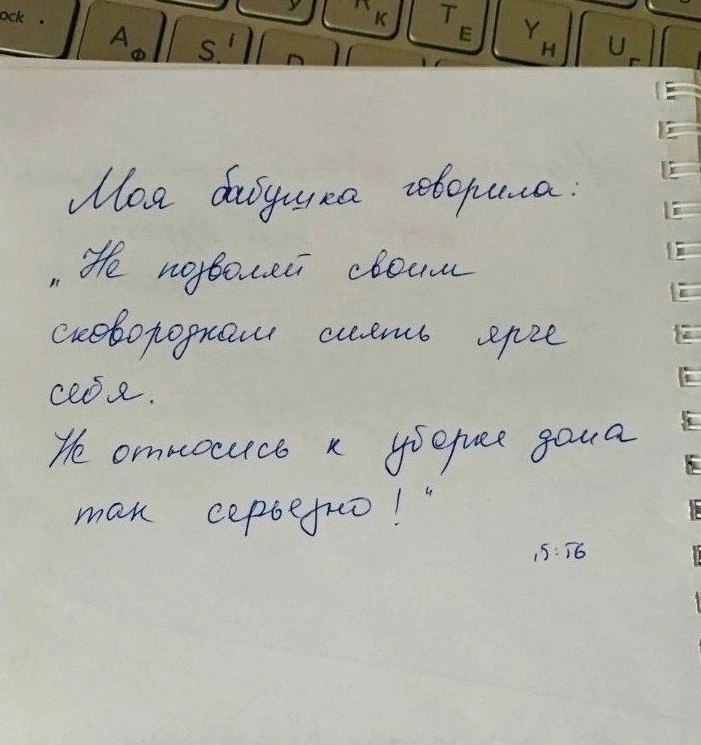 ock .
К
K
T
Е
A
Ф
S
Y
Н
U
Моя бабушка говорила:
„Не позволяй своим
сковородкам сиять ярче
себя.
Не относись к уборке дома
так серьезно!“